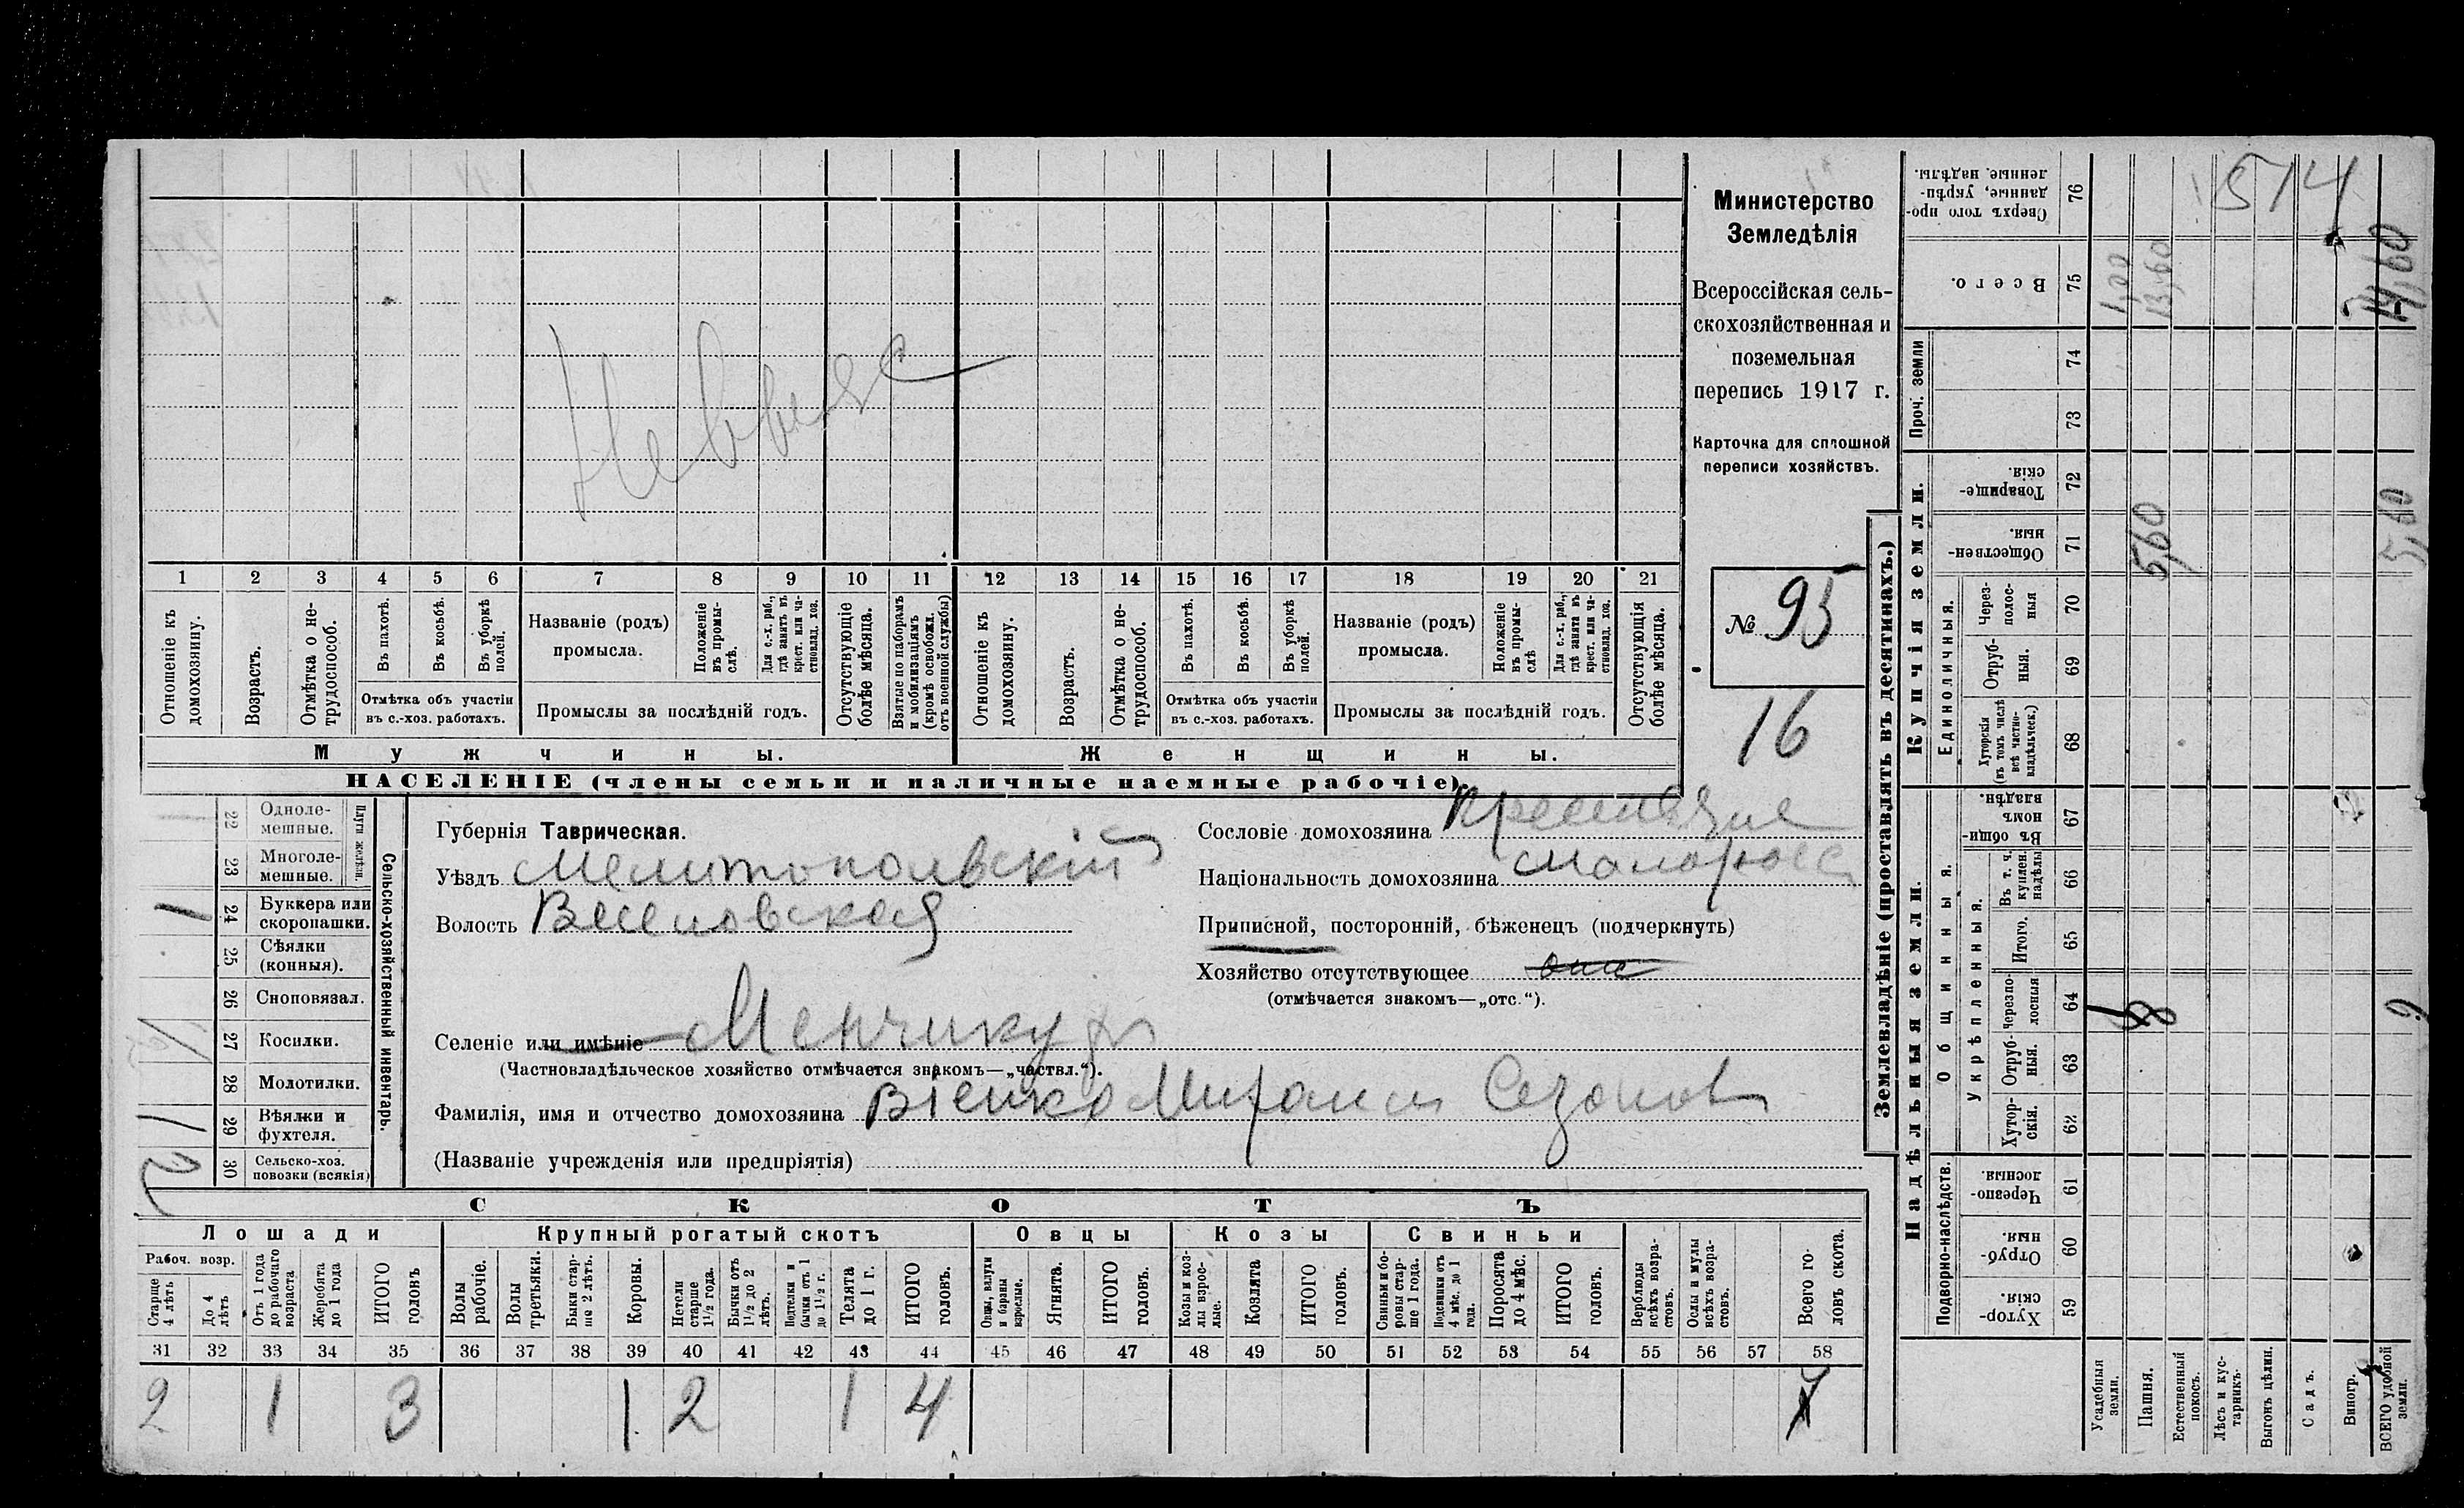 Министерство
Земледѣлія
Всероссійская сель-
скохозяйственная и
поземельная
перепись 1917 г.
Карточка для сплошной
переписи хозяйствъ.
№ 95
16
1 2 3 4 5 6 7 8 9 10 11 12 13 14 15 16 17 18 19 20 21
Отношеніе къ домохозяину.
Возрастъ.
Отмѣтка о не-трудоспособ.
Въ пахотѣ.
Въ косьбѣ.
Въ уборкѣ полей.
Отмѣтка объ участіи
въ с.-хоз. работахъ.
Названіе (родъ)
промысла.
Положеніе въ промы-слѣ.
Для с.-х. раб., гдѣ занятъ въ крест. или ча-стновлад. хоз.
Промыслы за послѣдній годъ.
Отсутствующіе болѣе мѣсяца.
Взятые по наборамъ и мобилизаціямъ (кромѣ освобожд. отъ военной службы)
Отношеніе къ домохозяину.
Возрастъ.
Отмѣтка о не-трудоспособ.
Въ пахотѣ.
Въ косьбѣ.
Въ уборкѣ полей.
Отмѣтка объ участіи
въ с.-хоз. работахъ.
Названіе (родъ)
промысла.
Положеніе въ промы-слѣ
Для с.-х. раб., гдѣ занята въ крест. или ча-стновлад. хоз.
Промыслы за послѣдній годъ.
Отсутствующія болѣе мѣсяца.
Мужчины.
Женщины.
НАСЕЛЕНІЕ (члены семьи и наличные наемные рабочіе).
Сельско-хозяйственный инвентарь.
Плуги желѣзн.
22 Одноле-мешные.
23 Многоле-мешные.
24 Буккера или скоропашки. 1
25 Сѣялки (конныя).
26 Сноповязал.
27 Косилки.
28 Молотилки.
29 Вѣялки и фухтеля. 1
30 Сельско-хоз. повозки (всякія) 2
Губернія Таврическая.
Уѣздъ Мелитопольскій
Волость Веселовская
Селеніе или имѣніе Менчикуръ
(Частновладѣльческое хозяйство отмѣчается знакомъ—„частвл.“).
Фамилія, имя и отчество домохозяина
(Названіе учрежденія или предпріятія)
Сословіе домохозяина
Національность домохозяина малоросс
Приписной, посторонній, бѣженецъ (подчеркнуть)
Хозяйство отсутствующее
(отмѣчается знакомъ—„отс.“).
СКОТЪ
Лошади
Крупный рогатый скотъ
Овцы
Козы
Свиньи
Рабоч. возр.
Старше 4 лѣтъ
До 4 лѣтъ
Отъ 1 года до рабочаго возраста
Жеребята до 1 года
ИТОГО головъ
Волы рабочіе.
Волы третьяки.
Быки стар-ше 2 лѣтъ.
Коровы.
Нетели старше 1½ года.
Бычки отъ 1½ до 2 лѣтъ.
Подтелки и бычки отъ 1 до 1½ г.
Телята до 1 г.
ИТОГО головъ.
Овцы, валухи и бараны взрослые.
Ягнята.
ИТОГО головъ.
Козы и коз-лы взрос-лые.
Козлята
ИТОГО головъ.
Свиньи и бо-ровы стар-ше 1 года.
Подсвинки отъ 4 мѣс. до 1 года.
Поросята до 4 мѣс.
ИТОГО головъ.
Верблюды всѣхъ возра-стовъ.
Ослы и мулы всѣхъ возра-стовъ.
Всего го-ловъ скота.
31 32 33 34 35 36 37 38 39 40 41 42 43 44 45 46 47 48 49 50 51 52 53 54 55 56 57 58
2 1 3 1 2 1 4 7
Землевладѣніе (проставлять въ десятинахъ.)
Надѣльныя земли.
Купчія земли.
Проч. земли
Подворно-наслѣдств.
Общинныя.
Укрѣпленныя.
Единоличныя.
59 Хутор-скія.
60 Отруб-ныя.
61 Черезпо-лосныя.
62 Хутор-скія.
63 Отруб-ныя.
64 Черезпо-лосныя
65 Итого.
66 Въ т. ч. куплен. надѣлы
67 Въ общи-номъ владѣн.
68 Хуторскія (въ томъ числѣ всѣ частно-владѣльческ.)
69 Отруб-ныя.
70 Через-полос-ныя
71 Обществен-ныя.
72 Товарище-скія.
73
74
75 Всего.
76 Сверхъ того про-данные, укрѣп-ленные, надѣлы.
Усадебныя земли.
Пашня.
Естественный покосъ.
Лѣсъ и кус-тарникъ.
Выгонъ цѣлин.
Садъ.
Виногр.
ВСЕГО удобной земли.
514
1,00
13,60
14,60
5,60
5,60
8
9